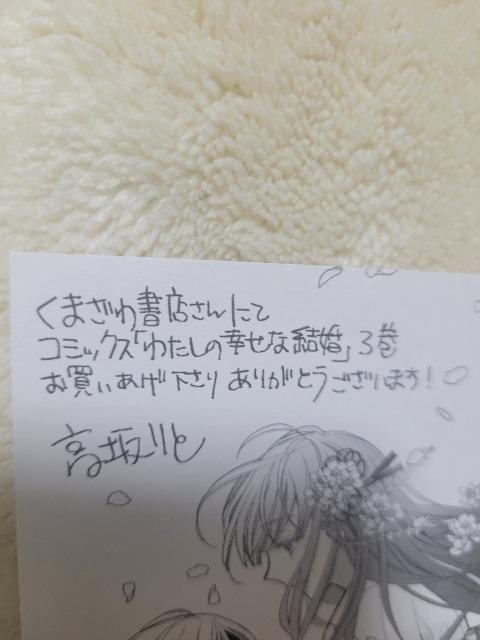 くまざわ書店さんにて
コミックス「わたしの幸せな結婚」3巻
お買いあげ下さり ありがとうございます!
高坂りと